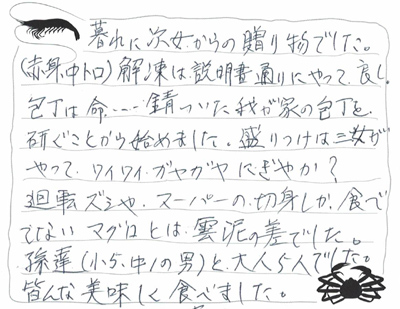 暮れに次女からの贈り物でした。
(赤身、中トロ)解凍は説明書通りにやって、良し。
包丁は命……錆ついた我が家の包丁を、
研ぐことから始めました。盛りつけは三女が
やって、ワイワイ、ガヤガヤにぎやか?
廻転ズシや、スーパーの切身しか、食べ
てないマグロとは、雲泥の差でした。
孫達(小5、中1の男)と、大人5人でした。
皆んな美味しく食べました。